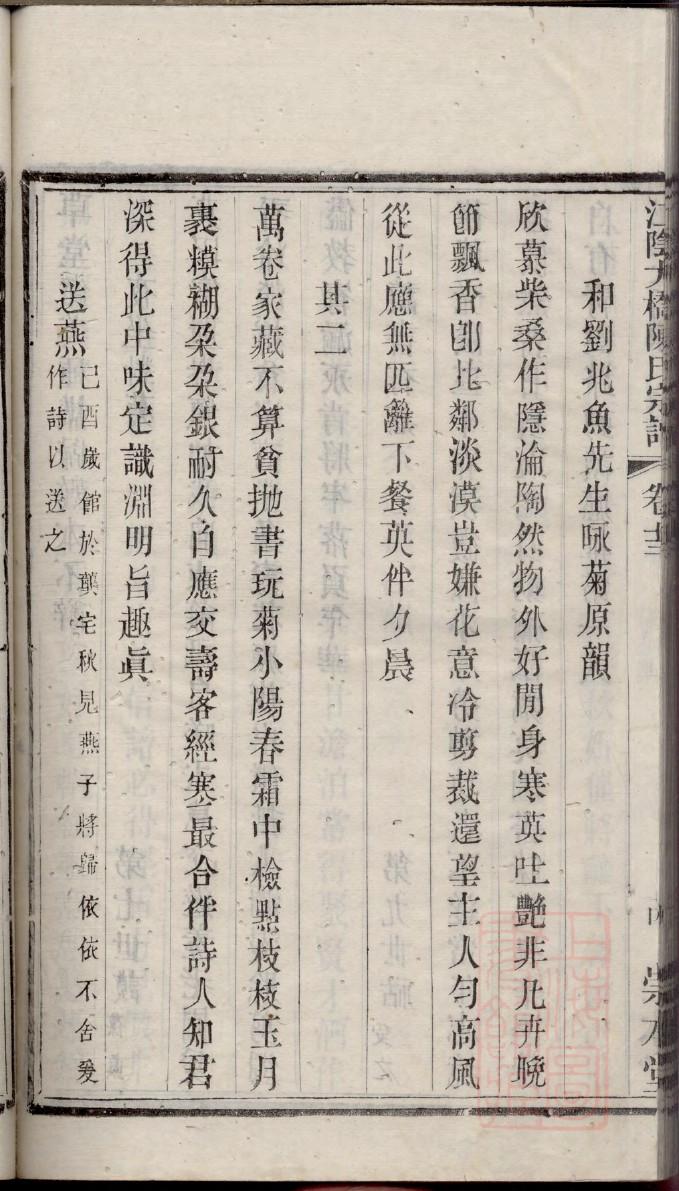 江陰六橋陳氏宗譜 卷十三 崇本堂
和劉兆魚先生咏菊原韻
欣慕柴桑作隱淪陶然物外好閒身寒英吐艷非凡卉晚
節飄香卽比鄰淡漠豈嫌花意冷剪裁還望主人勻高風
從此應無匹籬下餐英伴夕晨
其二
萬卷家藏不算貧拋書玩菊小陽春霜中檢點枝枝玉月
裏糢糊朶朶銀耐久自應交壽客經寒最合伴詩人知君
深得此中味定識淵明旨趣眞
送燕 己酉歲館於龔宅秋見燕子將歸依依不舍爰
作詩以送之